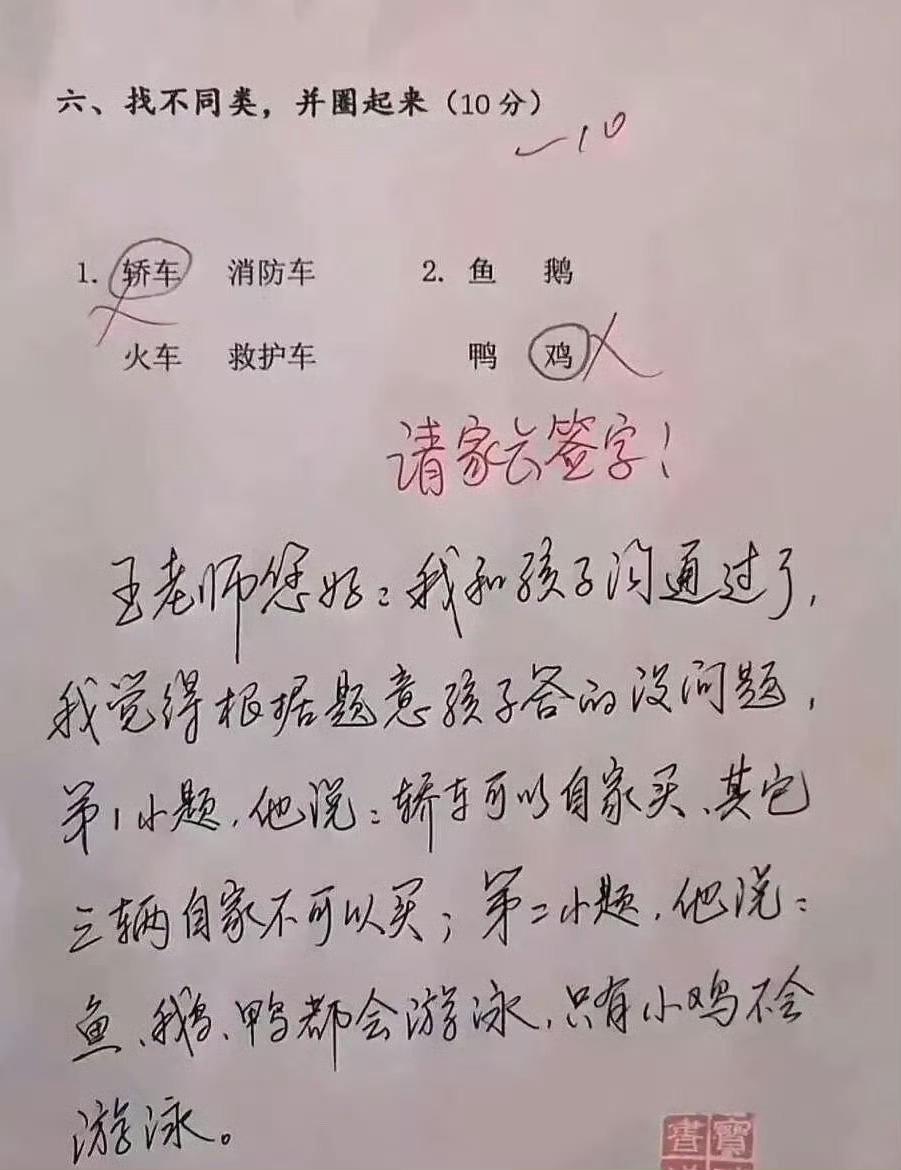 六、找不同类，并圈起来（10分）
-10
1. 轿车 消防车 2. 鱼 鹅
火车 救护车 鸭 鸡
请家长签字！
王老师您好：我和孩子沟通过了，
我觉得根据题意孩子答的没问题，
第1小题，他说：轿车可以自家买、其它
三辆自家不可以买；第二小题，他说：
鱼、鹅、鸭都会游泳，只有小鸡不会
游泳。
書寶